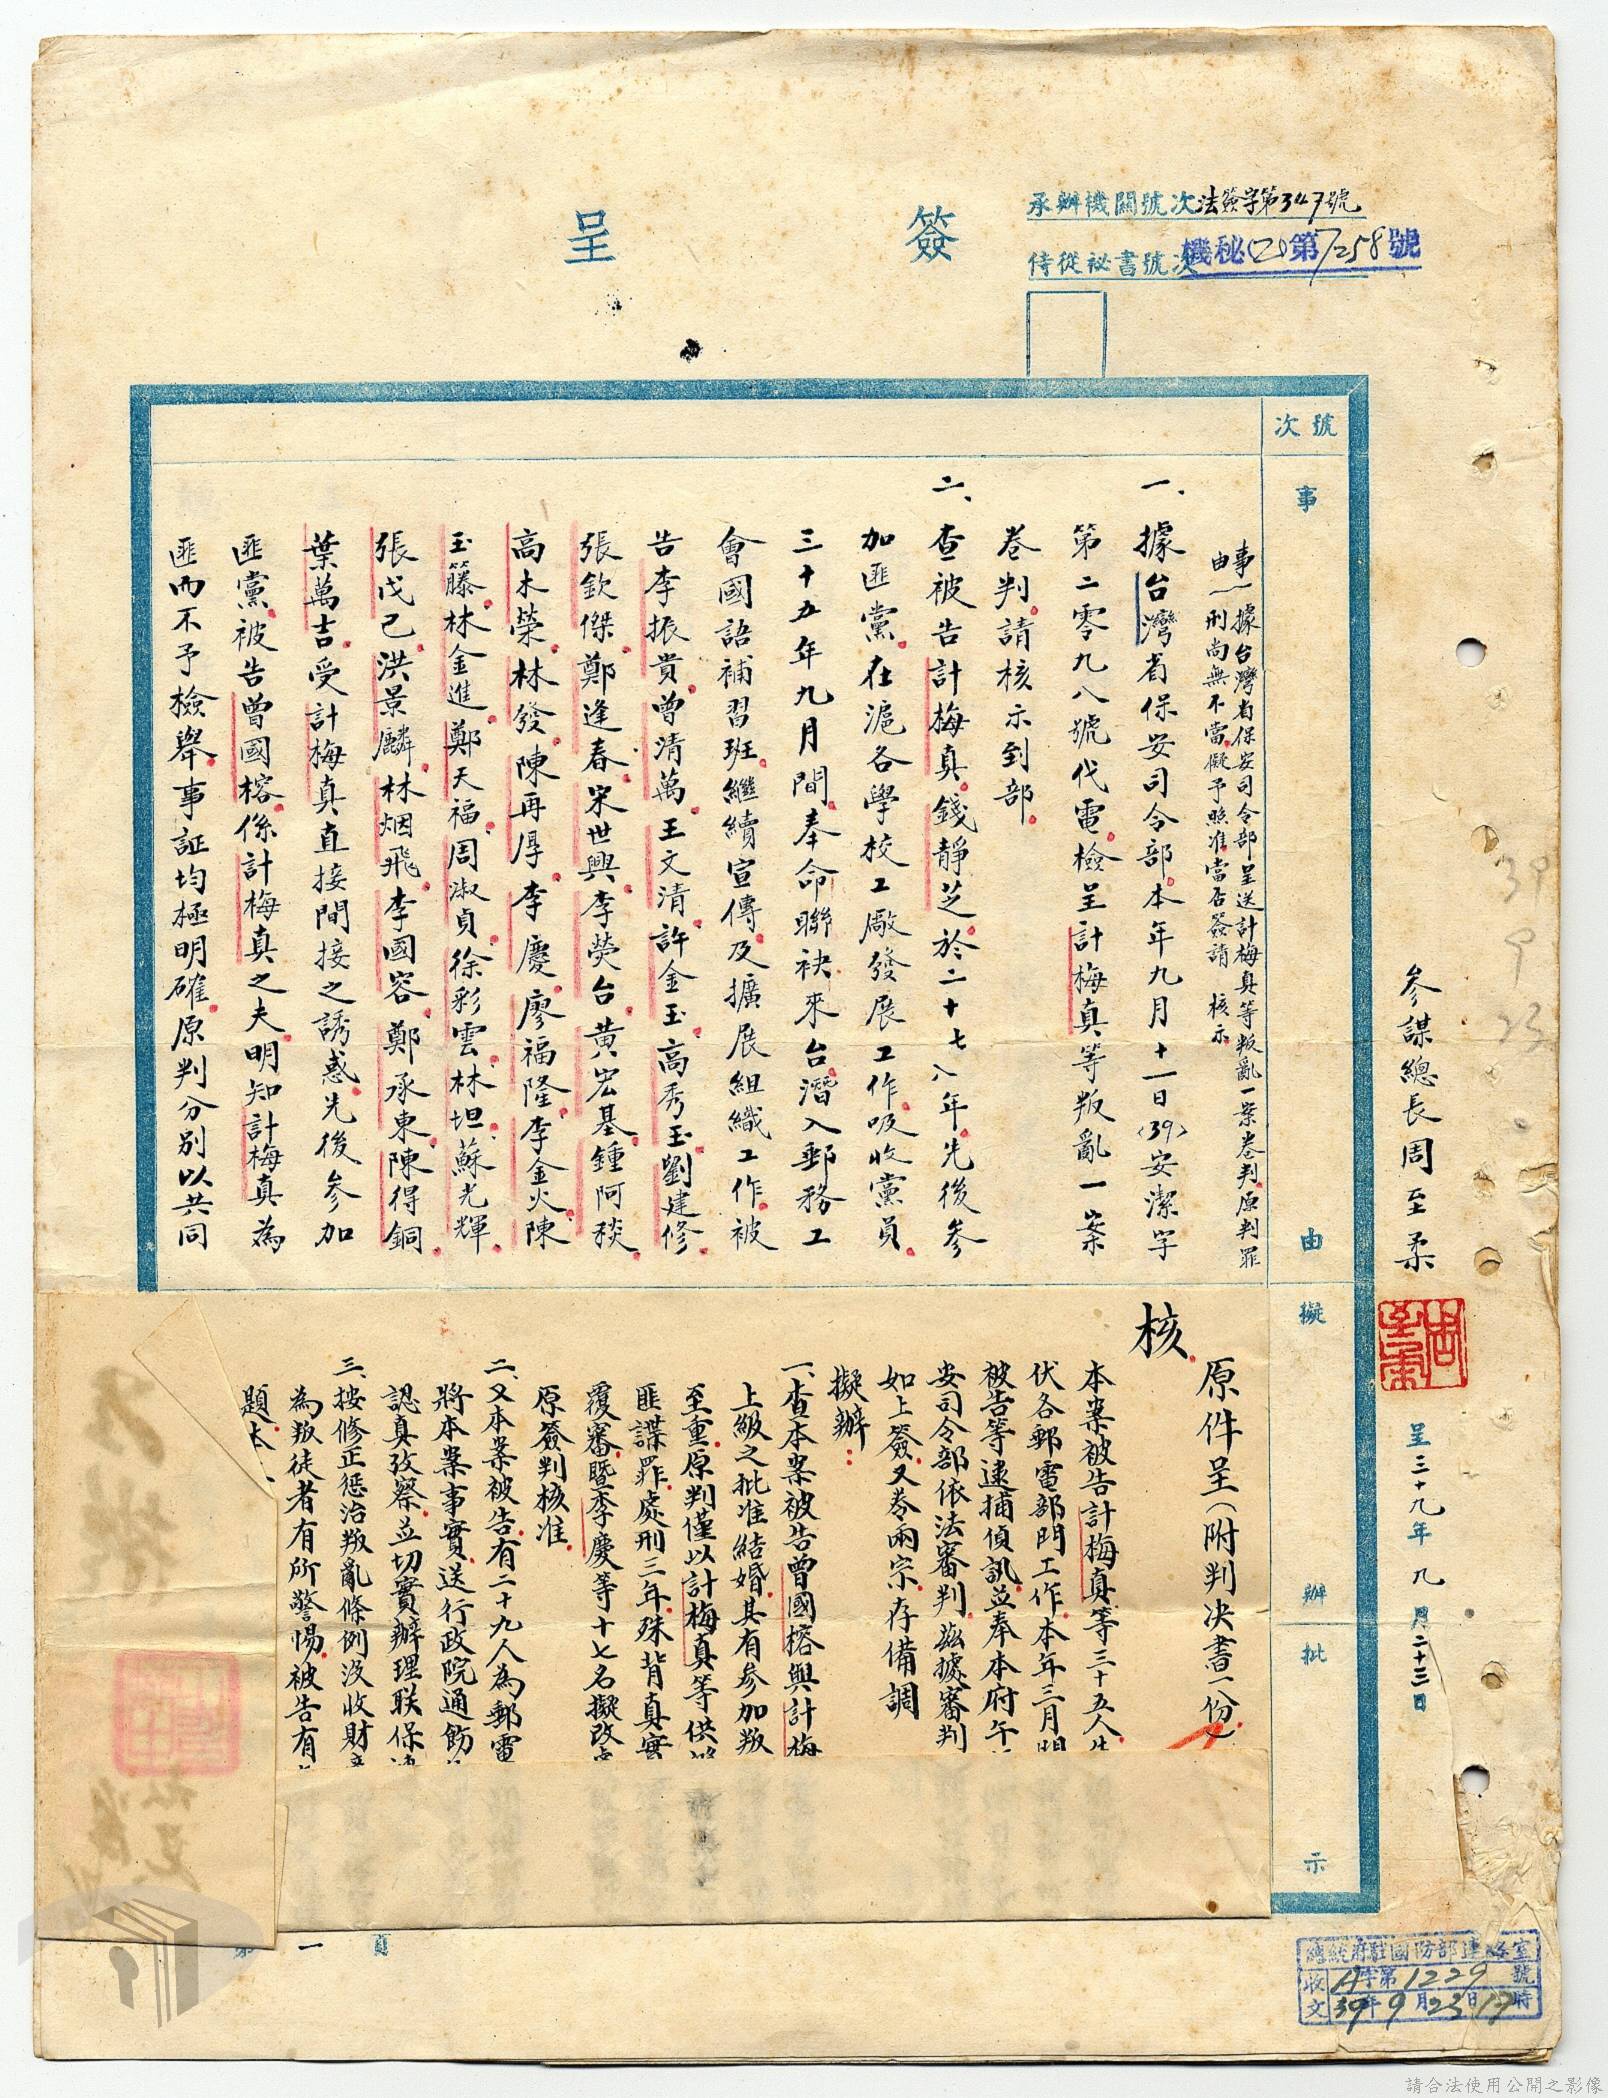 簽呈
承辦機關號次法簽字第347號
侍從祕書號次機秘(乙)第7258號
號次
事由
擬辦
批示
參謀總長周至柔
呈三十九年九月二十三日
事由
一據台灣省保安司令部呈送計梅真等叛亂一案卷判原判罪
刑尚無不當擬予照准當否簽請 核示
一、據台灣省保安司令部本年九月十一日(39)安潔字
第二零九八號代電檢呈計梅真等叛亂一案
卷判請核示到部
二、查被告計梅真錢靜芝於二十七八年先後參
加匪黨在滬各學校工廠發展工作吸收黨員
三十五年九月間奉命聯袂來台潛入郵務工
會國語補習班繼續宣傳及擴展組織工作被
告李振貴曾清萬王文清許金玉高秀玉劉建修
張欽傑鄭逢春宋世興李熒台黃宏基鍾阿稑
高木榮林發陳再厚李慶廖福隆李金火陳
玉籐林金進鄭天福周淑貞徐彩雲林坦蘇光輝
張戊己洪景麟林烟飛李國容鄭承東陳得銅
葉萬吉受計梅真直接間接之誘惑先後參加
匪黨被告曾國榕係計梅真之夫明知計梅真為
匪而不予檢舉事証均極明確原判分別以共同
核
原件呈(附判決書一份)
本案被告計梅真等三十五人
伏各郵電部門工作本年三月間
被告等逮捕偵訊並奉本府午
安司令部依法審判茲據審判
如上簽又卷兩宗存備調
擬辦:
一、查本案被告曾國榕與計梅
上級之批准結婚其有參加叛
至重原判僅以計梅真等供
匪諜罪處刑三年殊背真實
覆審暨李慶等十七名擬改
原簽判核准
二、又本案被告有二十九人為郵電
將本案事實送行政院通飭
認真攷察並切實辦理联保
三、按修正懲治叛亂條例沒收財
為叛徒者有所警惕被告有
題本
第一頁
總統府駐國防部連絡室
收文 A字第1229號
39年9月23日17時
39
9
23
請合法使用公開之影像